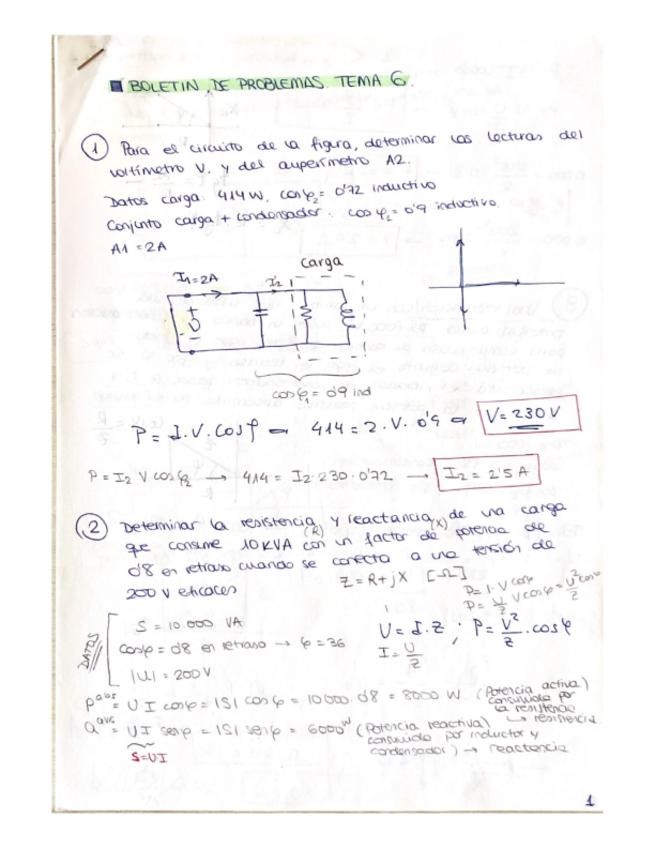 BOLETIN DE PROBLEMAS. TEMA 6.
1 Para el circuito de la figura, determinar las lecturas del
voltímetro V. y del amperímetro A2.
Datos carga: 414 W, cos φ2 = 0'72 inductivo
Conjunto carga + condensador: cos φ2 = 0'9 inductivo.
A1 = 2A
carga
I1=2A
I2
+
U
-
cos φ1 = 0'9 ind
P = I. V. cos φ 414 = 2. V. 0'9 V = 230 V
P = I2 V cos φ2 → 414 = I2 230 0'72 → I2 = 2'5 A
2 Determinar la resistencia (R) y reactancia (X) de una carga
que consume 10 KVA con un factor de potencia de
0'8 en retraso cuando se conecta a una tensión de
200 V eficaces
Z = R + jX [Ω]
P = I. V cos φ
P = U/Z V cos φ = U²/Z cos φ
DATOS
S = 10.000 VA
cos φ = 0'8 en retraso → φ = 36
|U| = 200 V
U = I. Z ; P = V²/Z . cos φ
I = U/Z
P abs = U I cos φ = |S| cos φ = 10000. 0'8 = 8000 W. (Potencia activa)
consumida por
la resistencia
↳ resistencia
Q abs = U I sen φ = |S| sen φ = 6000 W (Potencia reactiva)
consumida por inductor y
condensador) → reactancia
S=UI
1